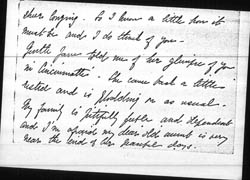 their longing. As I know a little how it
must be and I do think of you -
Gentle Jane told me of her glimpse of you
in Cincinnatti. She came back a little
rested and is plodding on as usual -
My family is pitifully feeble and dependent
and I'm afraid my dear old aunt is very
near the end of her beautiful days.